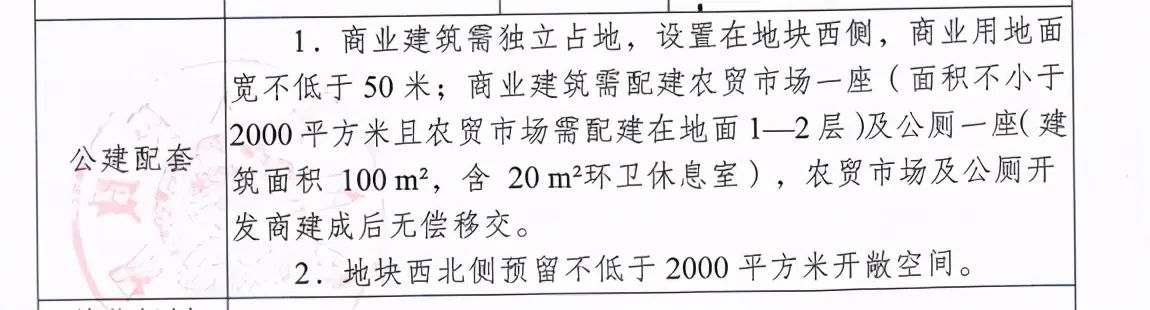 1. 商业建筑需独立占地，设置在地块西侧，商业用地面
宽不低于 50 米；商业建筑需配建农贸市场一座（面积不小于
2000 平方米且农贸市场需配建在地面 1—2 层)及公厕一座(建
公建配套
筑面积 100 m²，含 20 m²环卫休息室），农贸市场及公厕开
发商建成后无偿移交。
2. 地块西北侧预留不低于 2000 平方米开敞空间。